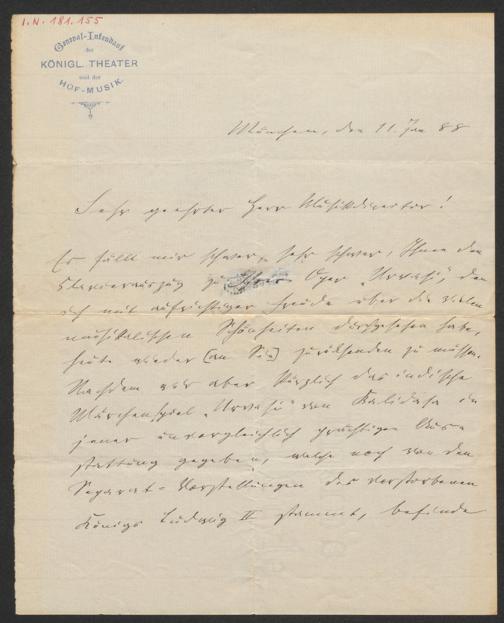 I.N. 181.155
General-Intendanz
der
KÖNIGL. THEATER
und der
HOF-MUSIK.
München, den 11. Jan 88
Sehr geehrter Herr Musikdirector!
Es fällt mir schwer, sehr schwer, Ihnen den
Clavierauszug zu Ihrer Oper „Urvasi", den
ich mit aufrichtiger Freude über die vielen
musikalischen Schönheiten durchgesehen habe,
heute wieder [an Sie] zurücksenden zu müssen.
Nachdem wir aber kürzlich das indische
Märchenspiel „Urvasi" von Kalidasa in
jener unvergleichlich prächtigen Aus-
stattung gegeben, welche noch von den
Separat-Vorstellungen des verstorbenen
Königs Ludwig II stammt, befinde